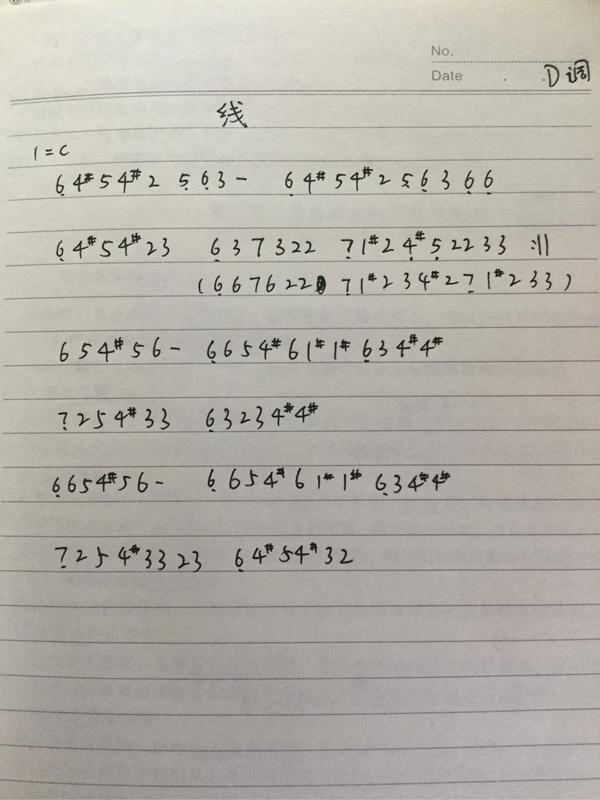 No.
Date . . D调
线
1=C
6̣ 4# 5 4# 2 5̣ 6̣ 3 - 6̣ 4# 5 4# 2 5̣ 6̣ 3 6̣ 6̣
6̣ 4# 5 4# 2 3 6̣ 3 7 3 2 2 7̣ 1# 2 4# 5̣ 2 2 3 3 :||
(6̣ 6 7 6 2 2 7̣ 1# 2 3 4# 2 7̣ 1# 2 3 3)
6 5 4# 5 6 - 6̣ 6 5 4# 6 1# 1# 6̣ 3 4# 4#
7̣ 2 5 4# 3 3 6̣ 3 2 3 4# 4#
6̣ 6 5 4# 5 6 - 6̣ 6 5 4# 6 1# 1# 6̣ 3 4# 4#
7̣ 2 5 4# 3 3 2 3 6̣ 4# 5 4# 3 2